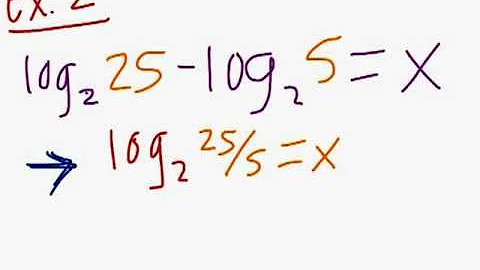 Ex. 2
log₂ 25 - log₂ 5 = x
→ log₂ 25/5 = x